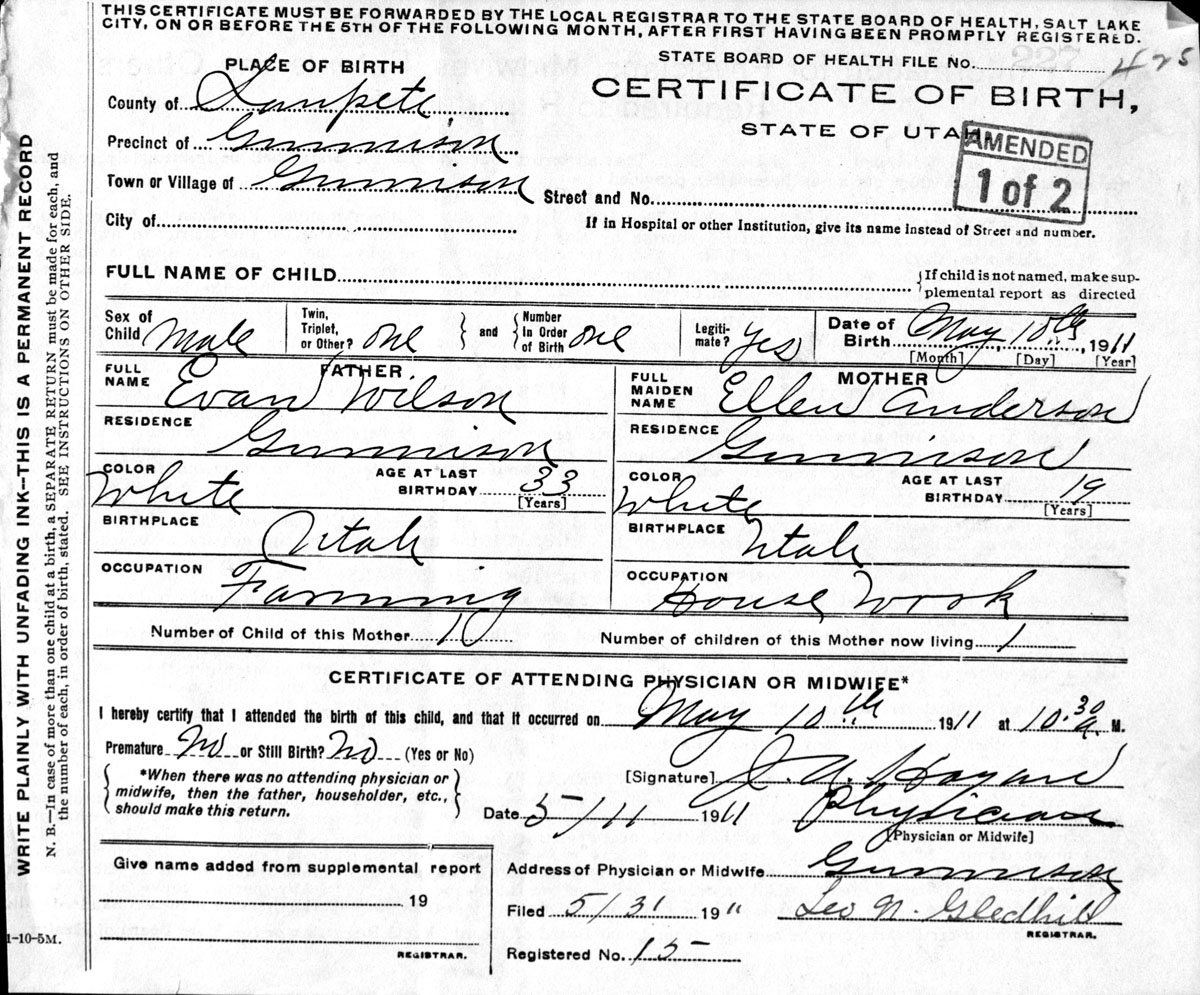 THIS CERTIFICATE MUST BE FORWARDED BY THE LOCAL REGISTRAR TO THE STATE BOARD OF HEALTH, SALT LAKE
CITY, ON OR BEFORE THE 5TH OF THE FOLLOWING MONTH, AFTER FIRST HAVING BEEN PROMPTLY REGISTERED.
STATE BOARD OF HEALTH FILE NO. 425
PLACE OF BIRTH
CERTIFICATE OF BIRTH,
STATE OF UTAH
AMENDED
1 of 2
County of Sanpete,
Precinct of Gunnison
Town or Village of Gunnison
Street and No.
City of
If in Hospital or other Institution, give its name instead of Street and number.
FULL NAME OF CHILD
{If child is not named, make sup-
plemental report as directed
Sex of Child Male
Twin, Triplet, or Other? one } and { Number In Order of Birth one
Legiti-mate? yes
Date of Birth May 10th, 1911
[Month] [Day] [Year]
FATHER
FULL NAME Evan Wilson
RESIDENCE Gunnison
COLOR White AGE AT LAST BIRTHDAY 33 [Years]
BIRTHPLACE Utah
OCCUPATION Farming
MOTHER
FULL MAIDEN NAME Ellen Anderson
RESIDENCE Gunnison
COLOR White AGE AT LAST BIRTHDAY 19 [Years]
BIRTHPLACE Utah
OCCUPATION House Work
Number of Child of this Mother 1
Number of children of this Mother now living 1
CERTIFICATE OF ATTENDING PHYSICIAN OR MIDWIFE*
I hereby certify that I attended the birth of this child, and that it occurred on May 10th 1911 at 10.30 a. M.
Premature No or Still Birth? No (Yes or No)
{ *When there was no attending physician or
midwife, then the father, householder, etc.,
should make this return. }
[Signature] J. N.
Date 5/11 1911 Physician
[Physician or Midwife]
Give name added from supplemental report
19
REGISTRAR.
Address of Physician or Midwife Gunnison
Filed 5/31 1911 Leo N. Gledhill
REGISTRAR.
Registered No. 15
WRITE PLAINLY WITH UNFADING INK--THIS IS A PERMANENT RECORD
N. B.--In case of more than one child at a birth, a SEPARATE RETURN must be made for each, and
the number of each, in order of birth, stated. SEE INSTRUCTIONS ON OTHER SIDE.
1-10-5M.